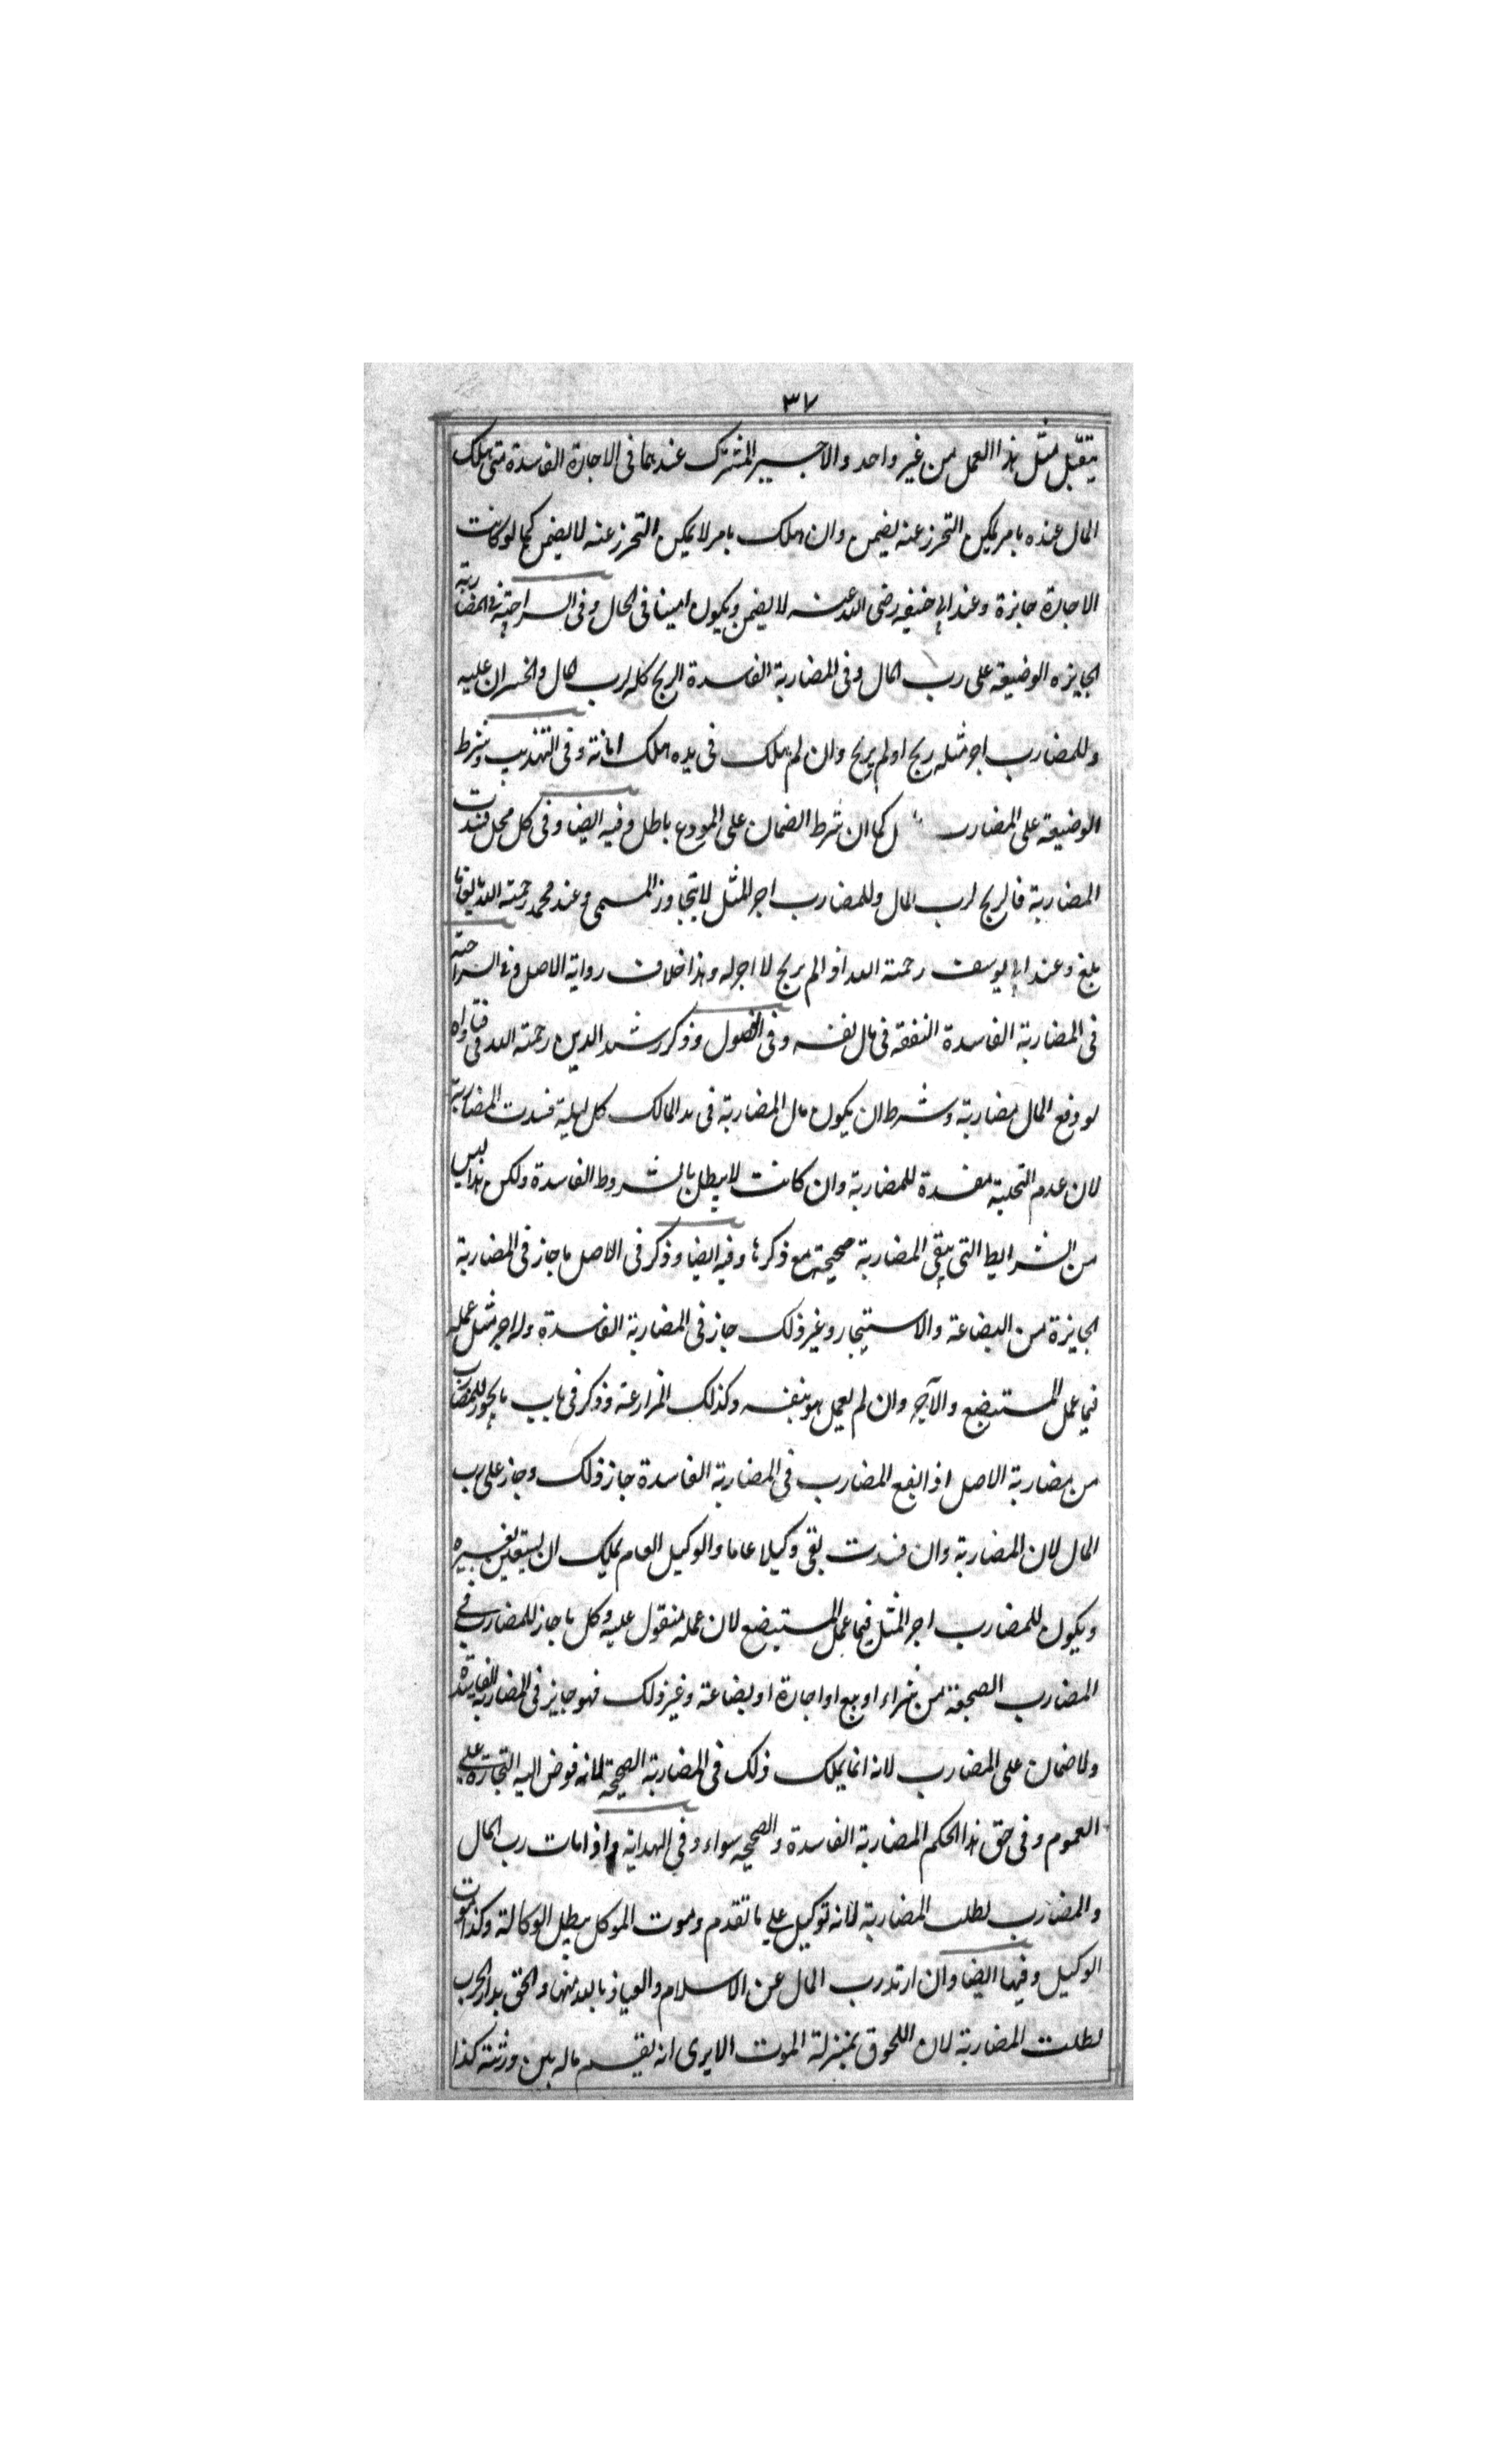 ٣٧
يتقبل مثل هذا العمل من غير واحد والاجير المشترك عندهما فى الاجارة الفاسدة متى هلك
المال عنده بامر يمكن التحرز عنه يضمن وان هلك بامر لا يمكن التحرز عنه لا يضمن كما لو كانت
الاجارة جايزة وعند ابى حنيفه رضى الله عنه لا يضمن ويكون امينا فى الحال وفى السراجية فى المضاربة
الجايزه الوضيعة على رب المال وفى المضاربة الفاسدة الربح كله لرب المال والخسران عليه
وللمضارب اجر مثله ربح او لم يربح وان لم هلك فى يده هلك امانة وفى التهذيب وشرط
الوضيعة على المضارب ل كما ان شرط الضمان على المودع باطل وفيه ايضا وفى كل محل فسدت
المضاربة فالربح لرب المال وللمضارب اجر المثل لا يتجاوز المسمى وعند محمد رحمة الله
بلغ وعند ابى يوسف رحمة الله اذا لم يربح لا اجر له وهذا خلاف رواية الاصل وفى السراجية
فى المضاربة الفاسدة النفقة فى مال نفسه وفى الفصول وذكر رشيد الدين رحمة الله فى فتاواه
لو دفع المال مضاربة وشرط ان يكون مال المضاربة فى يد المالك كل ليلة فسدت المضاربة
لان عدم التخلية مفسدة للمضاربة وان كانت لا يبطل بالشروط الفاسدة ولكن هذا ليس
من الشرايط التى يبقى المضاربة صحيحة مع ذكرها وفيه ايضا وذكر فى الاصل ما جاز فى المضاربة
الجايزة من البضاعة والاستيجار وغير ذلك جاز فى المضاربة الفاسدة وله اجر مثل عمله
فيما عمل المستبضع والآجر وان لم يعمل هو بنفسه وكذلك المزارعة وذكر فى باب ما يجوز للمضارب
من مضاربة الاصل اذا ابضع المضارب فى المضاربة الفاسدة جاز ذلك وجاز على رب
المال لان المضاربة وان فسدت بقى وكيلا عاما والوكيل العام يملك ان يستعين بغيره
ويكون للمضارب اجر المثل فيما عمل المستبضع لان عمله منقول عليه وكل ما جاز للمضارب فى
المضارب الصحيحة من شراء او بيع او اجارة او بضاعة وغير ذلك فهو جايز فى المضاربة الفاسدة
ولا ضمان على المضارب لانه انما يملك ذلك فى المضاربة الصحيحة لانه فوض اليه التجارة على
العموم وفى حق هذا الحكم المضاربة الفاسدة والصحيحه سواء وفى الهداية واذا مات رب المال
والمضارب بطلت المضاربة لانه توكيل على ما تقدم وموت الموكل يبطل الوكالة وكذا موت
الوكيل وفيها ايضا وان ارتد رب المال عن الاسلام والعياذ بالله منها والحق بدار الحرب
بطلت المضاربة لان اللحوق بمنزلة الموت الا يرى انه يقسم ماله بين ورثته كذا